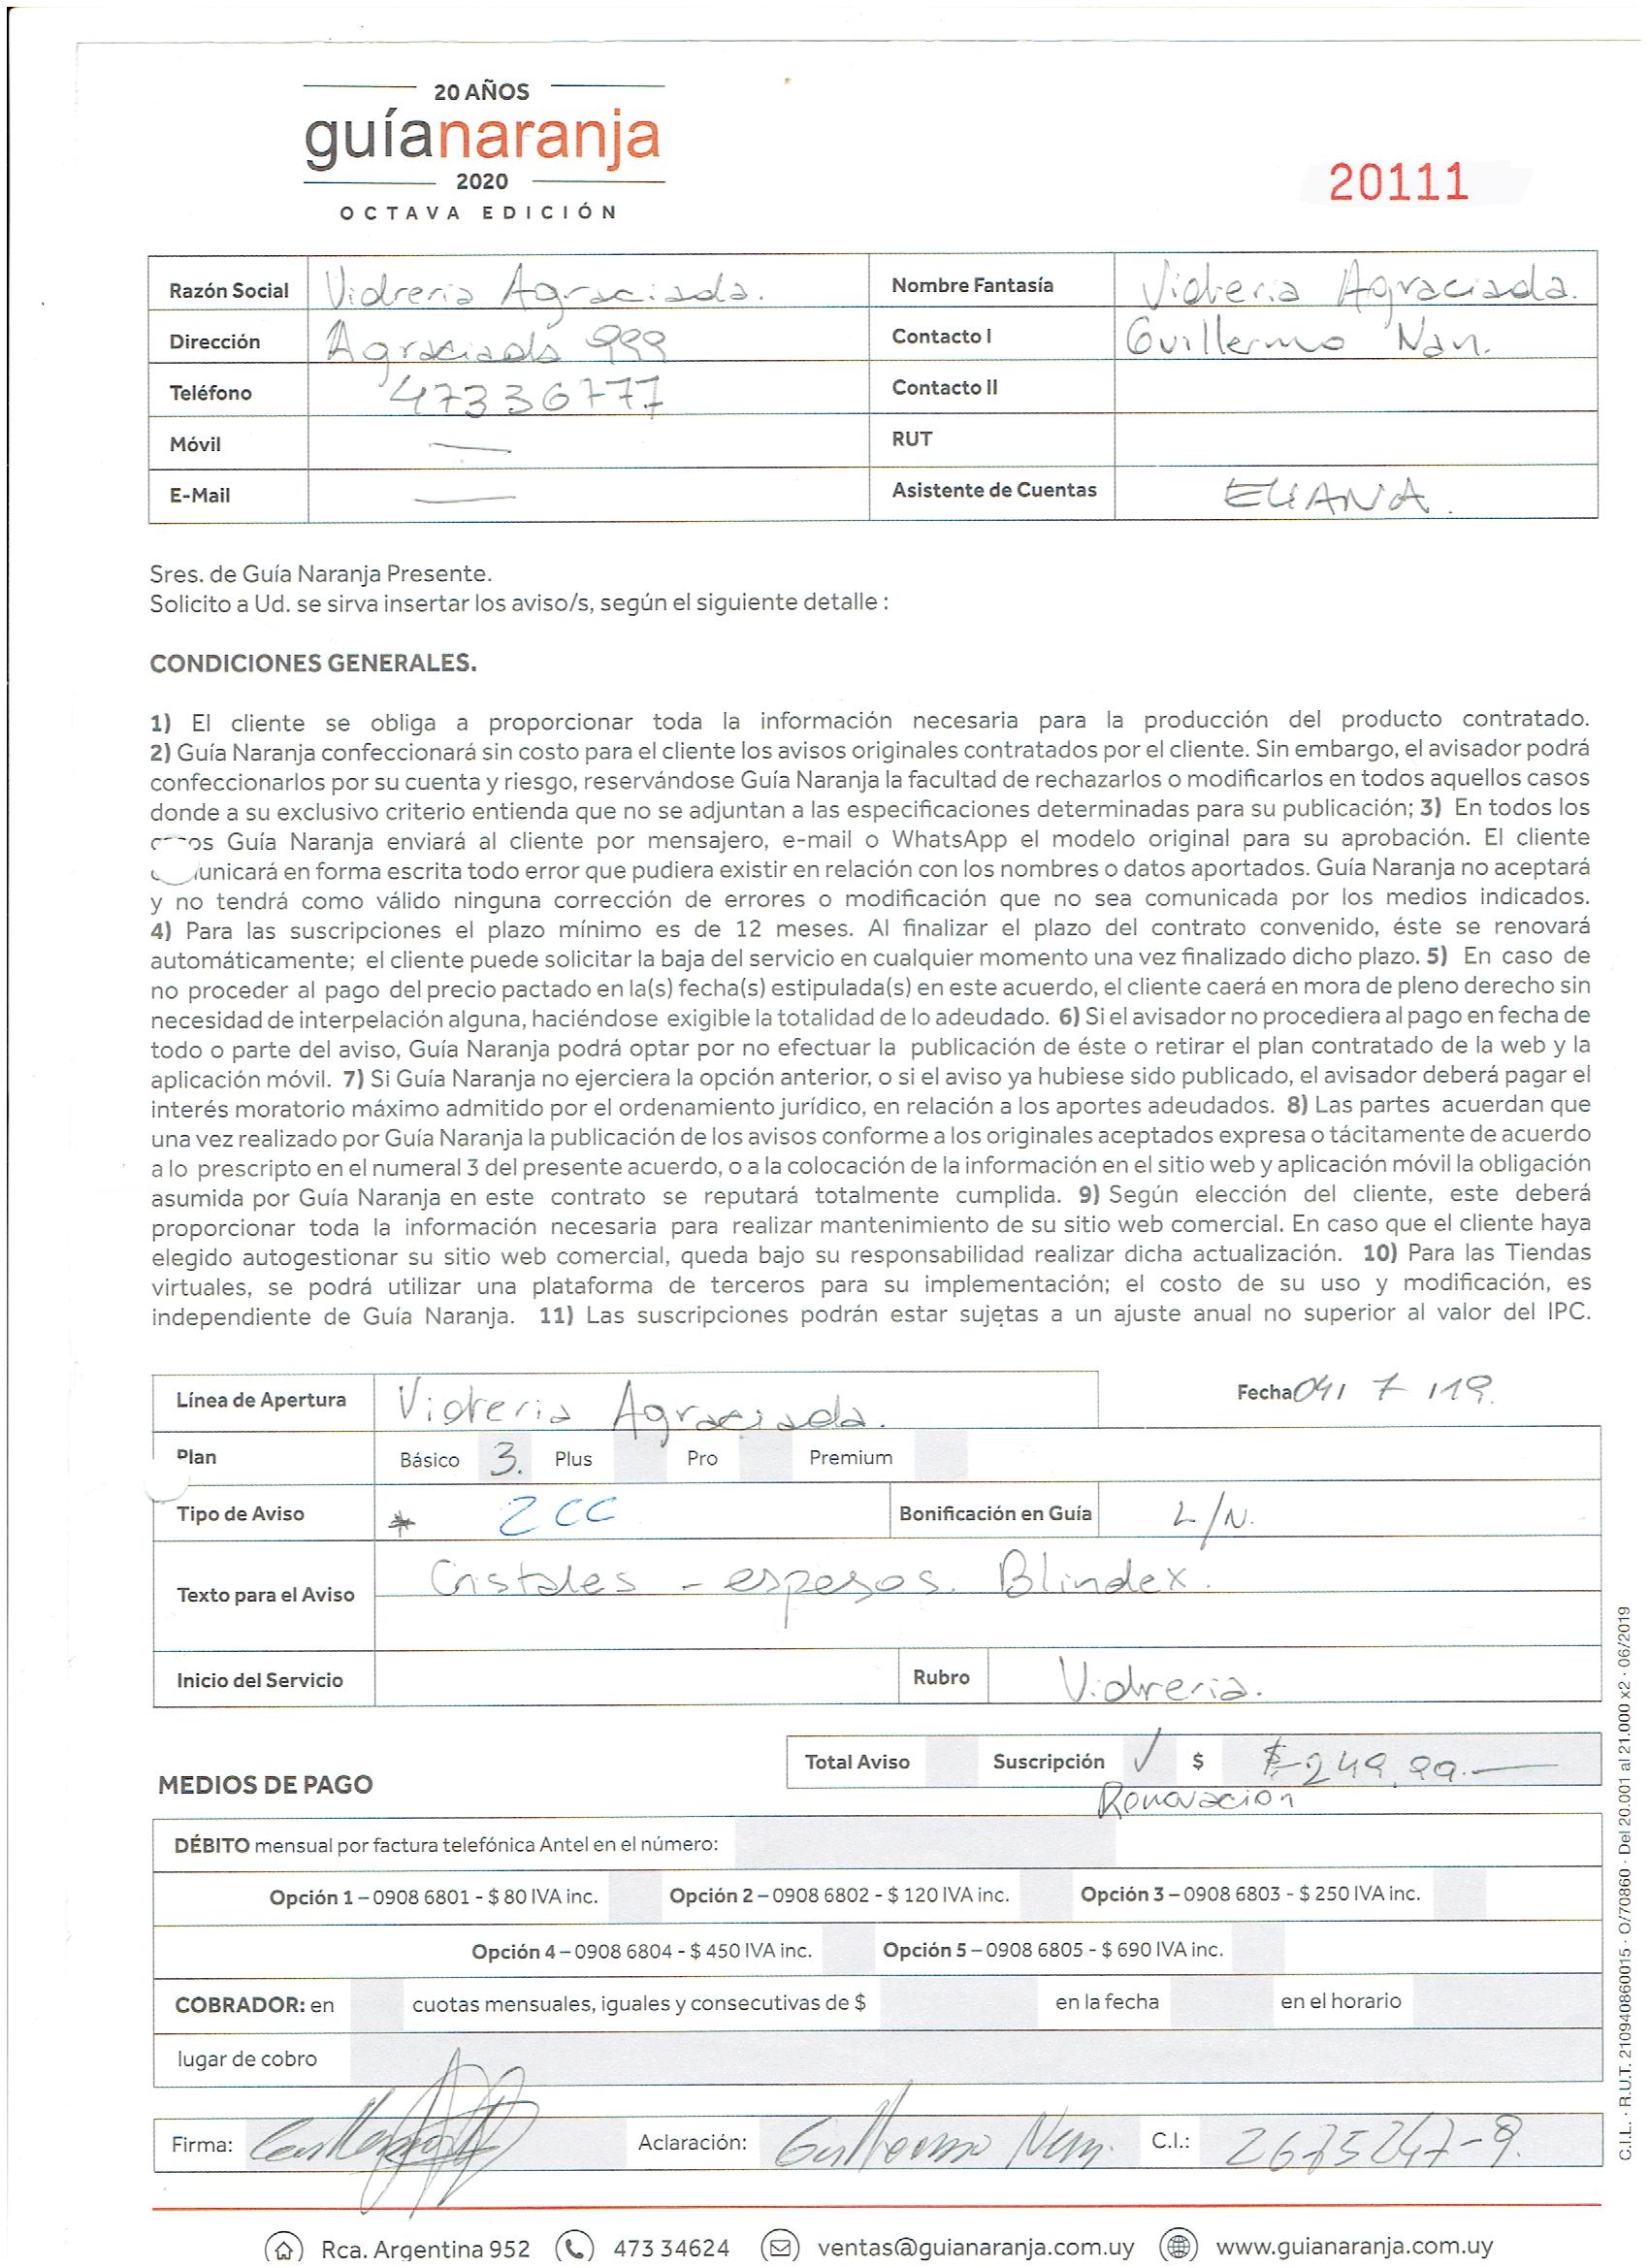 20 AÑOS
guíanaranja
2020
OCTAVA EDICIÓN
20111
Razón Social Vidreria Agraciada. Nombre Fantasía Vidreria Agraciada.
Dirección Agraciada 999 Contacto I Guillermo Nan.
Teléfono 47336777 Contacto II
Móvil — RUT
E-Mail — Asistente de Cuentas ELIANA.
Sres. de Guía Naranja Presente.
Solicito a Ud. se sirva insertar los aviso/s, según el siguiente detalle :
CONDICIONES GENERALES.
1) El cliente se obliga a proporcionar toda la información necesaria para la producción del producto contratado.
2) Guía Naranja confeccionará sin costo para el cliente los avisos originales contratados por el cliente. Sin embargo, el avisador podrá
confeccionarlos por su cuenta y riesgo, reservándose Guía Naranja la facultad de rechazarlos o modificarlos en todos aquellos casos
donde a su exclusivo criterio entienda que no se adjuntan a las especificaciones determinadas para su publicación; 3) En todos los
Guía Naranja enviará al cliente por mensajero, e-mail o WhatsApp el modelo original para su aprobación. El cliente
unicará en forma escrita todo error que pudiera existir en relación con los nombres o datos aportados. Guía Naranja no aceptará
y no tendrá como válido ninguna corrección de errores o modificación que no sea comunicada por los medios indicados.
4) Para las suscripciones el plazo mínimo es de 12 meses. Al finalizar el plazo del contrato convenido, éste se renovará
automáticamente; el cliente puede solicitar la baja del servicio en cualquier momento una vez finalizado dicho plazo. 5) En caso de
no proceder al pago del precio pactado en la(s) fecha(s) estipulada(s) en este acuerdo, el cliente caerá en mora de pleno derecho sin
necesidad de interpelación alguna, haciéndose exigible la totalidad de lo adeudado. 6) Si el avisador no procediera al pago en fecha de
todo o parte del aviso, Guía Naranja podrá optar por no efectuar la publicación de éste o retirar el plan contratado de la web y la
aplicación móvil. 7) Si Guía Naranja no ejerciera la opción anterior, o si el aviso ya hubiese sido publicado, el avisador deberá pagar el
interés moratorio máximo admitido por el ordenamiento jurídico, en relación a los aportes adeudados. 8) Las partes acuerdan que
una vez realizado por Guía Naranja la publicación de los avisos conforme a los originales aceptados expresa o tácitamente de acuerdo
a lo prescripto en el numeral 3 del presente acuerdo, o a la colocación de la información en el sitio web y aplicación móvil la obligación
asumida por Guía Naranja en este contrato se reputará totalmente cumplida. 9) Según elección del cliente, este deberá
proporcionar toda la información necesaria para realizar mantenimiento de su sitio web comercial. En caso que el cliente haya
elegido autogestionar su sitio web comercial, queda bajo su responsabilidad realizar dicha actualización. 10) Para las Tiendas
virtuales, se podrá utilizar una plataforma de terceros para su implementación; el costo de su uso y modificación, es
independiente de Guía Naranja. 11) Las suscripciones podrán estar sujetas a un ajuste anual no superior al valor del IPC.
Línea de Apertura Vidreria Agraciada. Fecha 04/ 7 /19.
Plan Básico 3. Plus Pro Premium
Tipo de Aviso * 2 CC Bonificación en Guía L/N.
Texto para el Aviso Cristales - espesos. Blindex.
Inicio del Servicio Rubro Vidreria.
Total Aviso Suscripción ✓ $ $ 249,99.—
MEDIOS DE PAGO Renovación
DÉBITO mensual por factura telefónica Antel en el número:
Opción 1 – 0908 6801 - $ 80 IVA inc. Opción 2 – 0908 6802 - $ 120 IVA inc. Opción 3 – 0908 6803 - $ 250 IVA inc.
Opción 4 – 0908 6804 - $ 450 IVA inc. Opción 5 – 0908 6805 - $ 690 IVA inc.
COBRADOR: en cuotas mensuales, iguales y consecutivas de $ en la fecha en el horario
lugar de cobro
Firma: Aclaración: Guillermo Nan. C.I.: 2675247-9.
Rca. Argentina 952 473 34624 ventas@guianaranja.com.uy www.guianaranja.com.uy
C.I.L. · R.U.T. 210940860015 · O/70860 · Del 20.001 al 21.000 x2 · 06/2019